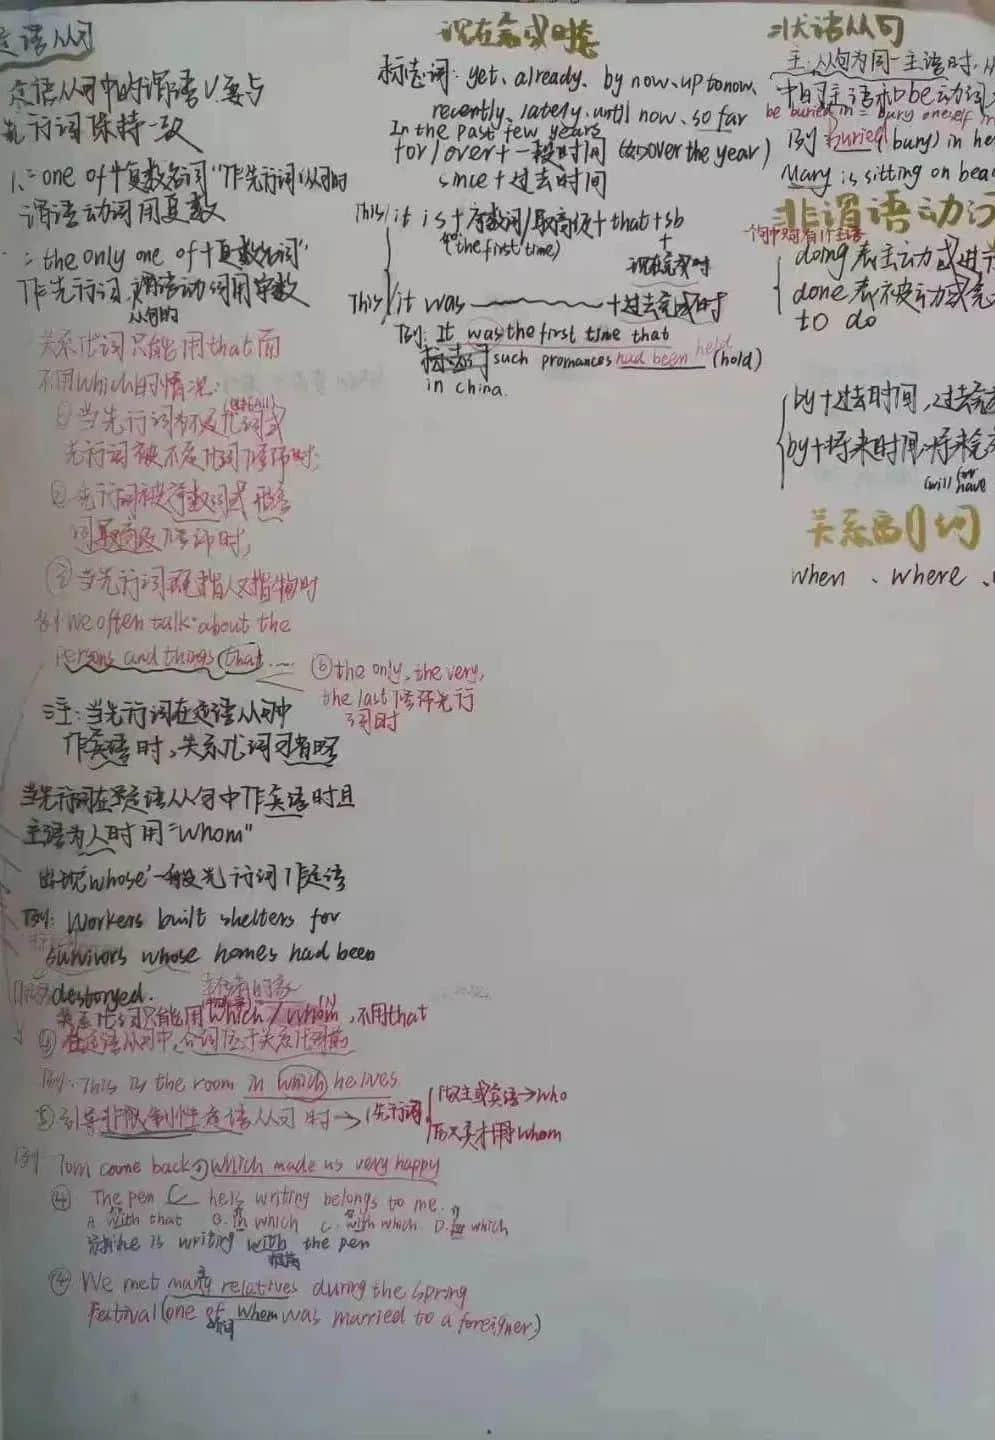 定语从句
定语从句中的谓语V要与
先行词保持一致
1、"one of+复数名词"作先行词,从句的
谓语动词用复数
"the only one of+复数名词"
作先行词,谓语动词用单数
从句的
关系代词只能用that而
不用which的情况:
①当先行词为不定代词或
先行词被不定代词修饰时;
②先行词被序数词或形容
词最高级修饰时,
③当先行词既指人又指物时
例 We often talk about the
persons and things that.....
⑥the only, the very,
the last修饰先行
词时
注:当先行词在定语从句中
作宾语时,关系代词可省略
当先行词在定语从句中作宾语时且
主语为人时用"whom"
出现"whose"一般先行词作定语
例: Workers built shelters for
survivors whose homes had been
destoryed.
关系代词只能用which/whom,不用that
④在定语从句中,介词位于关系代词前
例: This is the room in which he lives
⑤引导非限制性定语从句时→先行词
作主或宾语→who
只宾才用whom
例 Tom came back, which made us very happy
④ The pen he is writing belongs to me.
A. with that B. in which C. with which D. which
he is writing with the pen
④ We met many relatives during the spring
Festival (one of whom was married to a foreigner)
现在完成时态
标志词: yet、already、by now、up to now、
recently、lately、until now、so far
In the past few years
for/over+一段时间(如over the year)
since+过去时间
This/it is+序数词/最高级+that+sb
(the first time)
+
现在完成时
This/it was +过去完成时
例: It was the first time that
such promances had been held (hold)
in china.
状语从句
主:从句为同一主语时,从
中的主语和be动词
be buried in = bury oneself in
例 Buried (bury) in he
Mary is sitting on bea
非谓语动词
一个句中只有1个主语
doing表主动或进
done表被动或完
to do
by+过去时间,过去完
by+将来时间,将来完
(will/ for have
关系副词
when、where、